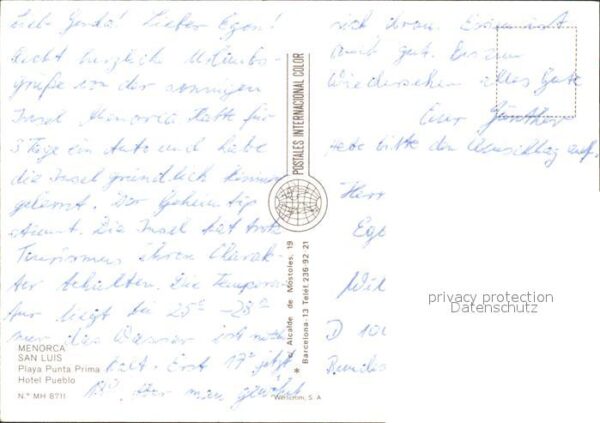 Lieb Gerda! Lieber Egon!
Recht herzliche Urlaubs-
grüße von der sonnigen
Insel Menorca Hatte für
3 Tage ein Auto und habe
die Insel gründlich kennen
gelernt. Der Geheimtip
stimmt. Die Insel hat trotz
Tourismus ihren Charak-
ter behalten. Die Tempera-
tur liegt bei 25° - 28°
nur das Wasser ist noch
kalt. Erst 17° jetzt
18°. Aber man gewöhnt
sich dran. Essen ist
auch gut. Bis zum
Wiedersehen alles Gute
Euer Günther
hebe bitte den Umschlag auf.
Herr
Ego
Wil
D 100
MENORCA
SAN LUIS
Playa Punta Prima
Hotel Pueblo
N.° MH 8711
POSTALES INTERNACIONAL COLOR
Alcalde de Móstoles, 19
Barcelona-13 Telét. 236 92 21
S. A
privacy protection
Datenschutz